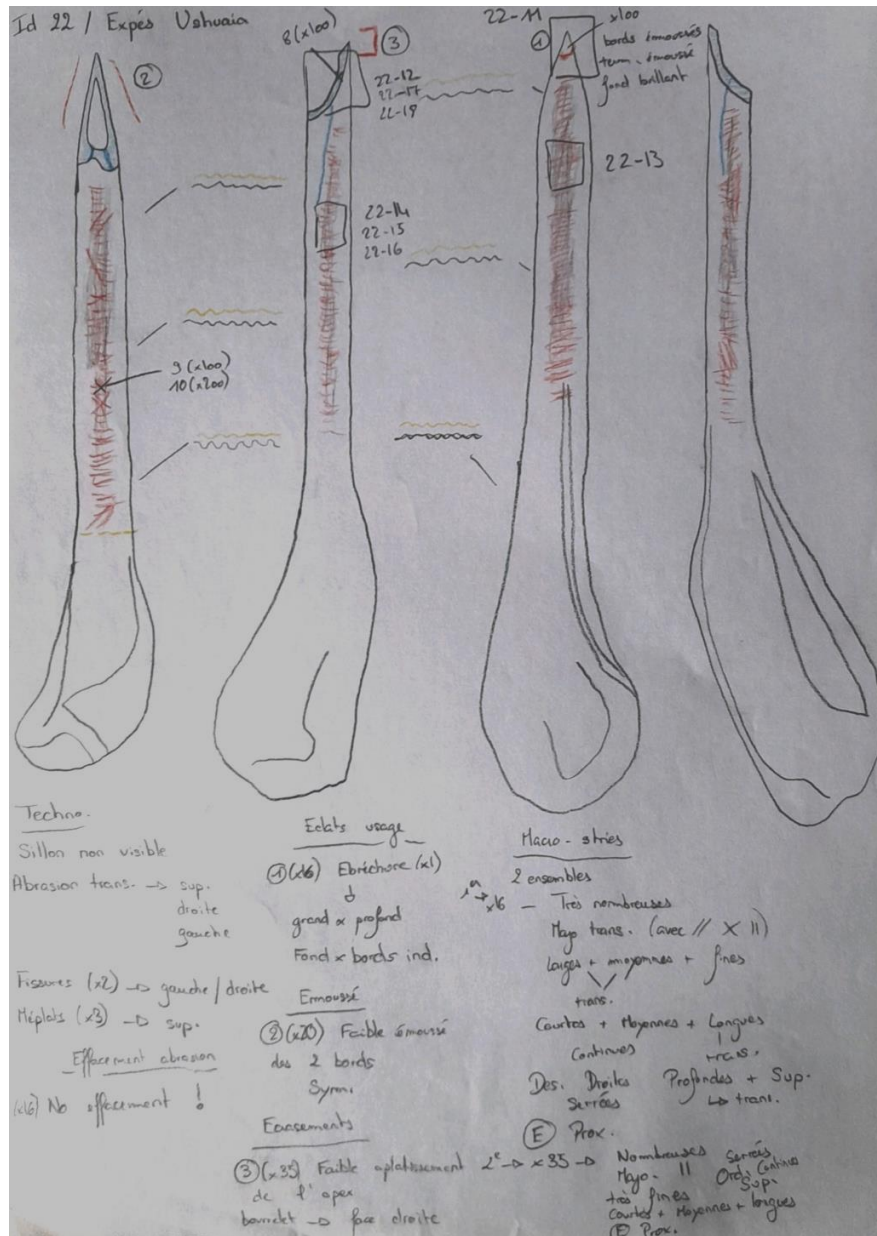 Id 22 / Expés Ushuaia
②
8 (x100)
③
22-12
22-17
22-19
22-14
22-15
22-16
9 (x100)
10 (x200)
22-11
①
x100
bords émoussés
term. émoussé
fond brillant
22-13
Techno.
Sillon non visible
Abrasion trans. → sup.
droite
gauche
Fissures (x2) → gauche / droite
Méplats (x3) → sup.
Effacement abrasion
(x16) No effacement !
Eclats usage
① (x16) Ebréchure (x1)
↓
grand × profond
Fond × bords ind.
Emoussé
② (x20) Faible émoussé
des 2 bords
Sym.
Ecrasements
③ (x35) Faible aplatissement
de l'apex
bourrelet → face droite
Macro-stries
2 ensembles
x16 – Très nombreuses
Majo trans. (avec // X ||)
Larges + moyennes + fines
trans.
Courtes + Moyennes + Longues
Continues
trans.
Des. Droites Profondes + Sup.
Serrées ↳ trans.
Ⓔ Prox.
2e → x35 → Nombreuses Serrées
Majo. || Ord. Continues
très fines Sup.
Courtes + Moyennes + longues
Ⓔ Prox.